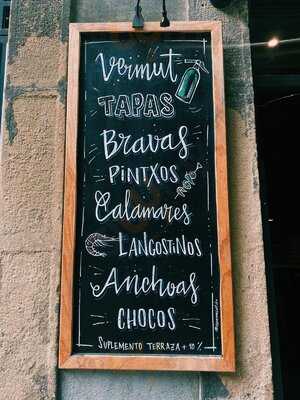 Vermut
TAPAS
Bravas
PiNTXOS
ROJO
Calamares
LANGOSTiNOS
Anchoas
CHOCOS
SUPLEMENTO TERRAZA + 10 %